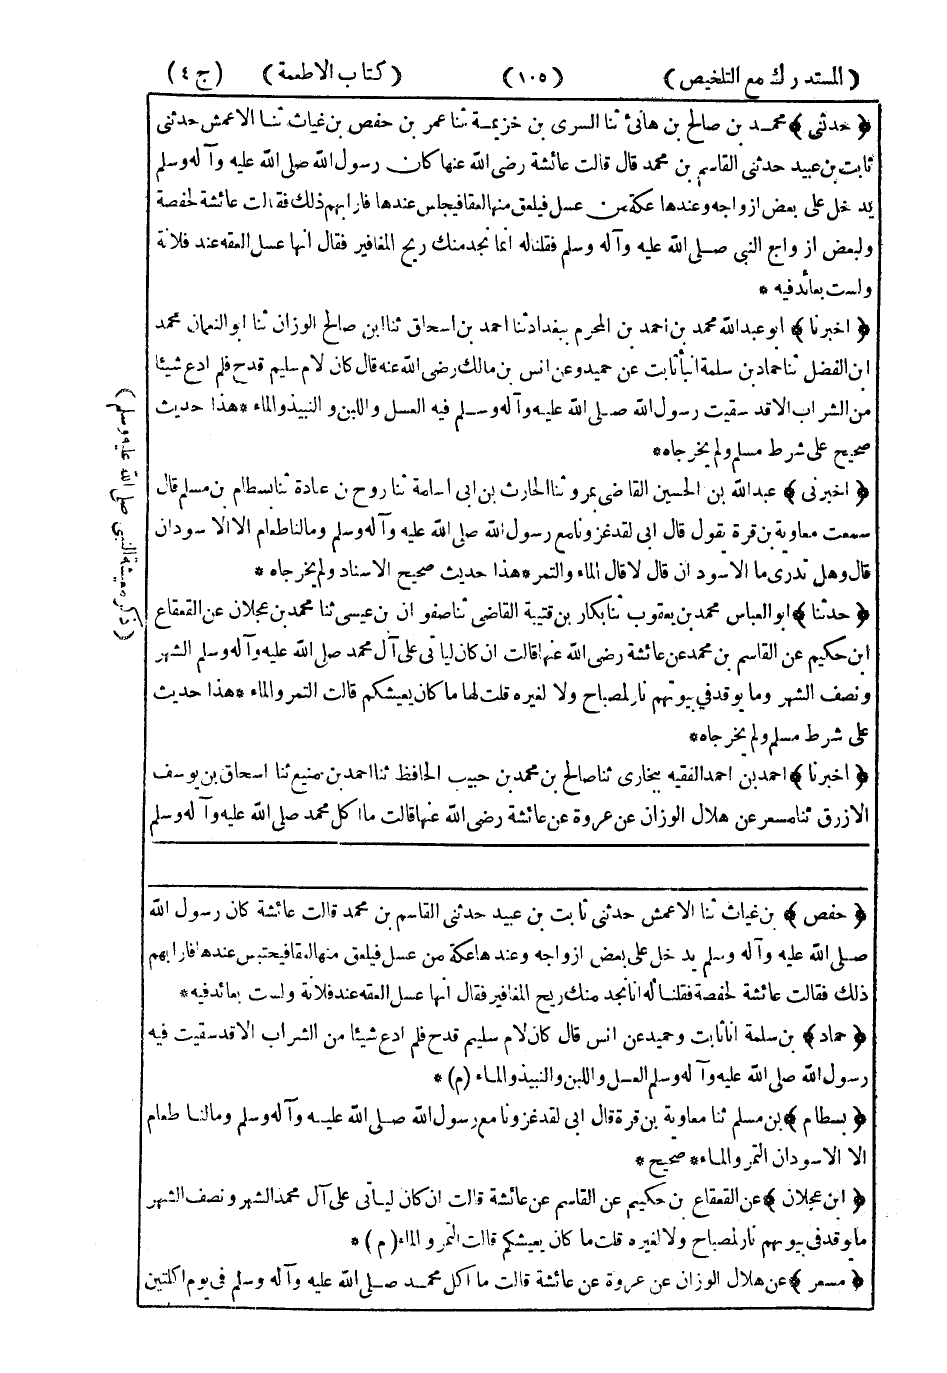 (المستدرك مع التلخيص) (١٠٥) (كتاب الاطعمة) (ج ٤)
﴿حدثنى﴾ محمد بن صالح بن هانئ ثنا السرى بن خزيمة ثنا عمر بن حفص بن غياث ثنا الاعمش حدثنى
ثابت بن عبيد حدثنى القاسم بن محمد قال قالت عائشة رضى الله عنها كان رسول الله صلى الله عليه وآله وسلم
يدخل على بعض ازواجه وعندها عكة من عسل فيلعق منها لعقا فيجلس عندها فارابهم ذلك فقالت عائشة لحفصة
ولبعض ازواج النبى صلى الله عليه وآله وسلم فقلنا له انما نجد منك ريح المغافير فقال انها عسل العقه عند فلانة
ولست بعائد فيه *
﴿اخبرنا﴾ ابو عبد الله محمد بن احمد بن المحرم ببغداد ثنا احمد بن اسحاق ثنا ابن صالح الوزان ثنا ابو النعمان محمد
ابن الفضل ثنا حماد بن سلمة انبأ ثابت عن حميد وعن انس بن مالك رضى الله عنه قال كان لام سليم قدح فلم ادع شيئا
من الشراب الا قد سقيت رسول الله صلى الله عليه وآله وسلم فيه العسل واللبن و النبيذ والماء * هذا حديث
صحيح على شرط مسلم ولم يخرجاه *
﴿اخبرنى﴾ عبد الله بن الحسين القاضى بمرو ثنا الحارث بن ابى اسامة ثنا روح بن عادة ثنا بسطام بن مسلم قال
سمعت معاوية بن قرة يقول قال ابى لقد غزونا مع رسول الله صلى الله عليه وآله وسلم ومالنا طعام الا الا سودان
قال وهل تدرى ما الاسودان قال لا قال الماء والتمر * هذا حديث صحيح الاسناد ولم يخرجاه *
﴿حدثنا﴾ ابو العباس محمد بن يعقوب ثنا بكار بن قتيبة القاضى ثنا صفوان بن عيسى ثنا محمد بن عجلان عن القعقاع
ابن حكيم عن القاسم بن محمد عن عائشة رضى الله عنها قالت ان كان ليأتى على آل محمد صلى الله عليه وآله وسلم الشهر
ونصف الشهر وما يوقد فى بيوتهم نار لمصباح ولا لغيره قلت لها ما كان يعيشكم قالت التمر والماء * هذا حديث
على شرط مسلم ولم يخرجاه *
﴿اخبرنا﴾ احمد بن احمد الفقيه ببخارى ثنا صالح بن محمد بن حبيب الحافظ ثنا احمد بن منيع ثنا اسحاق بن يوسف
الازرق ثنا مسعر عن هلال الوزان عن عروة عن عائشة رضى الله عنها قالت ما اكل محمد صلى الله عليه وآله وسلم
(ذكر معيشة النبى صلى الله عليه وسلم)
﴿حفص﴾ بن غياث ثنا الاعمش حدثنى ثابت بن عبيد حدثنى القاسم بن محمد قالت عائشة كان رسول الله
صلى الله عليه وآله وسلم يدخل على بعض ازواجه وعندها عكة من عسل فيلعق منها لعقا فيحتبس عندها فارابهم
ذلك فقالت عائشة لحفصة فقلنا له انا نجد منك ريح المغافير فقال انها عسل العقه عند فلانة ولست بعائد فيه *
﴿حماد﴾ بن سلمة انا ثابت وحميد عن انس قال كان لام سليم قدح فلم ادع شيئا من الشراب الا قد سقيت فيه
رسول الله صلى الله عليه وآله وسلم العسل واللبن والنبيذ والماء (م) *
﴿بسطام﴾ بن مسلم ثنا معاوية بن قرة قال ابى لقد غزونا مع رسول الله صلى الله عليه وآله وسلم ومالنا طعام
الا الاسودان التمر والماء * صحيح *
﴿ابن عجلان﴾ عن القعقاع بن حكيم عن القاسم عن عائشة قالت ان كان ليأتى على آل محمد الشهر ونصف الشهر
ما يوقد فى بيوتهم نار لمصباح ولا لغيره قلت ما كان يعيشكم قالت التمر والماء (م) *
﴿مسعر﴾ عن هلال الوزان عن عروة عن عائشة قالت ما اكل محمد صلى الله عليه وآله وسلم فى يوم اكلتين